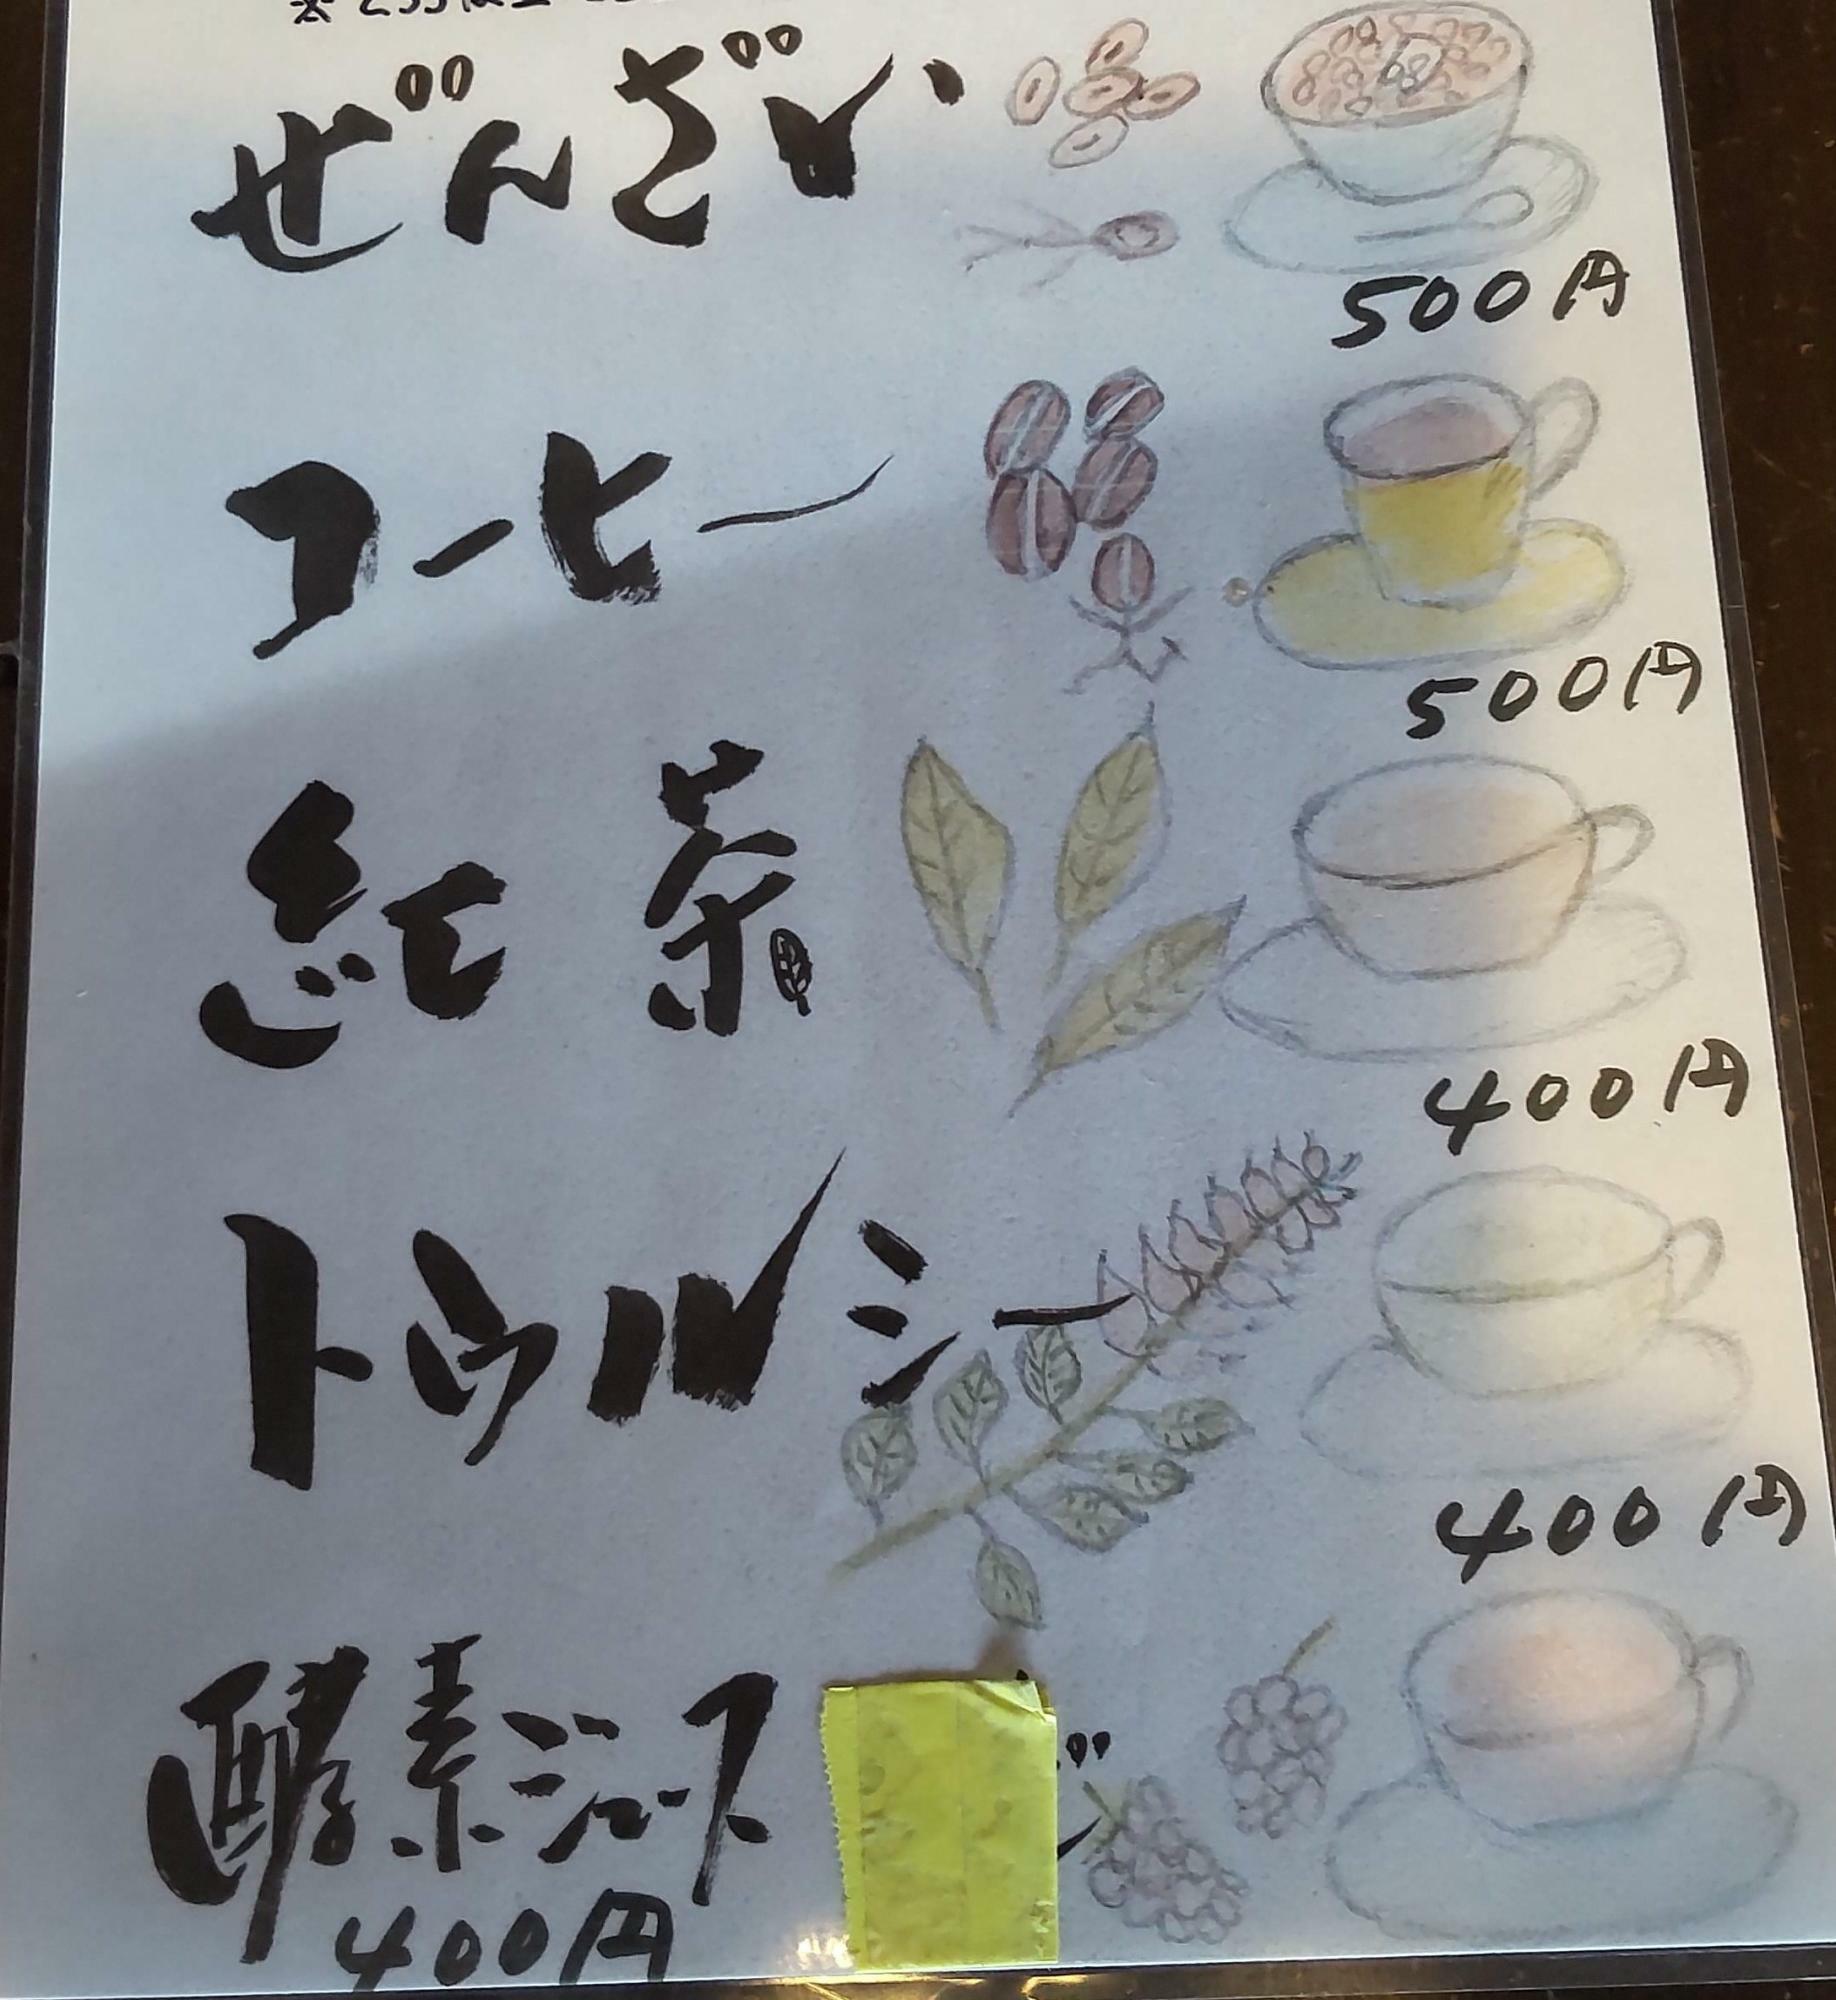 ぜんざい
500円
コーヒー
500円
紅茶
400円
トゥルシー
400円
酵素ジュース
400円